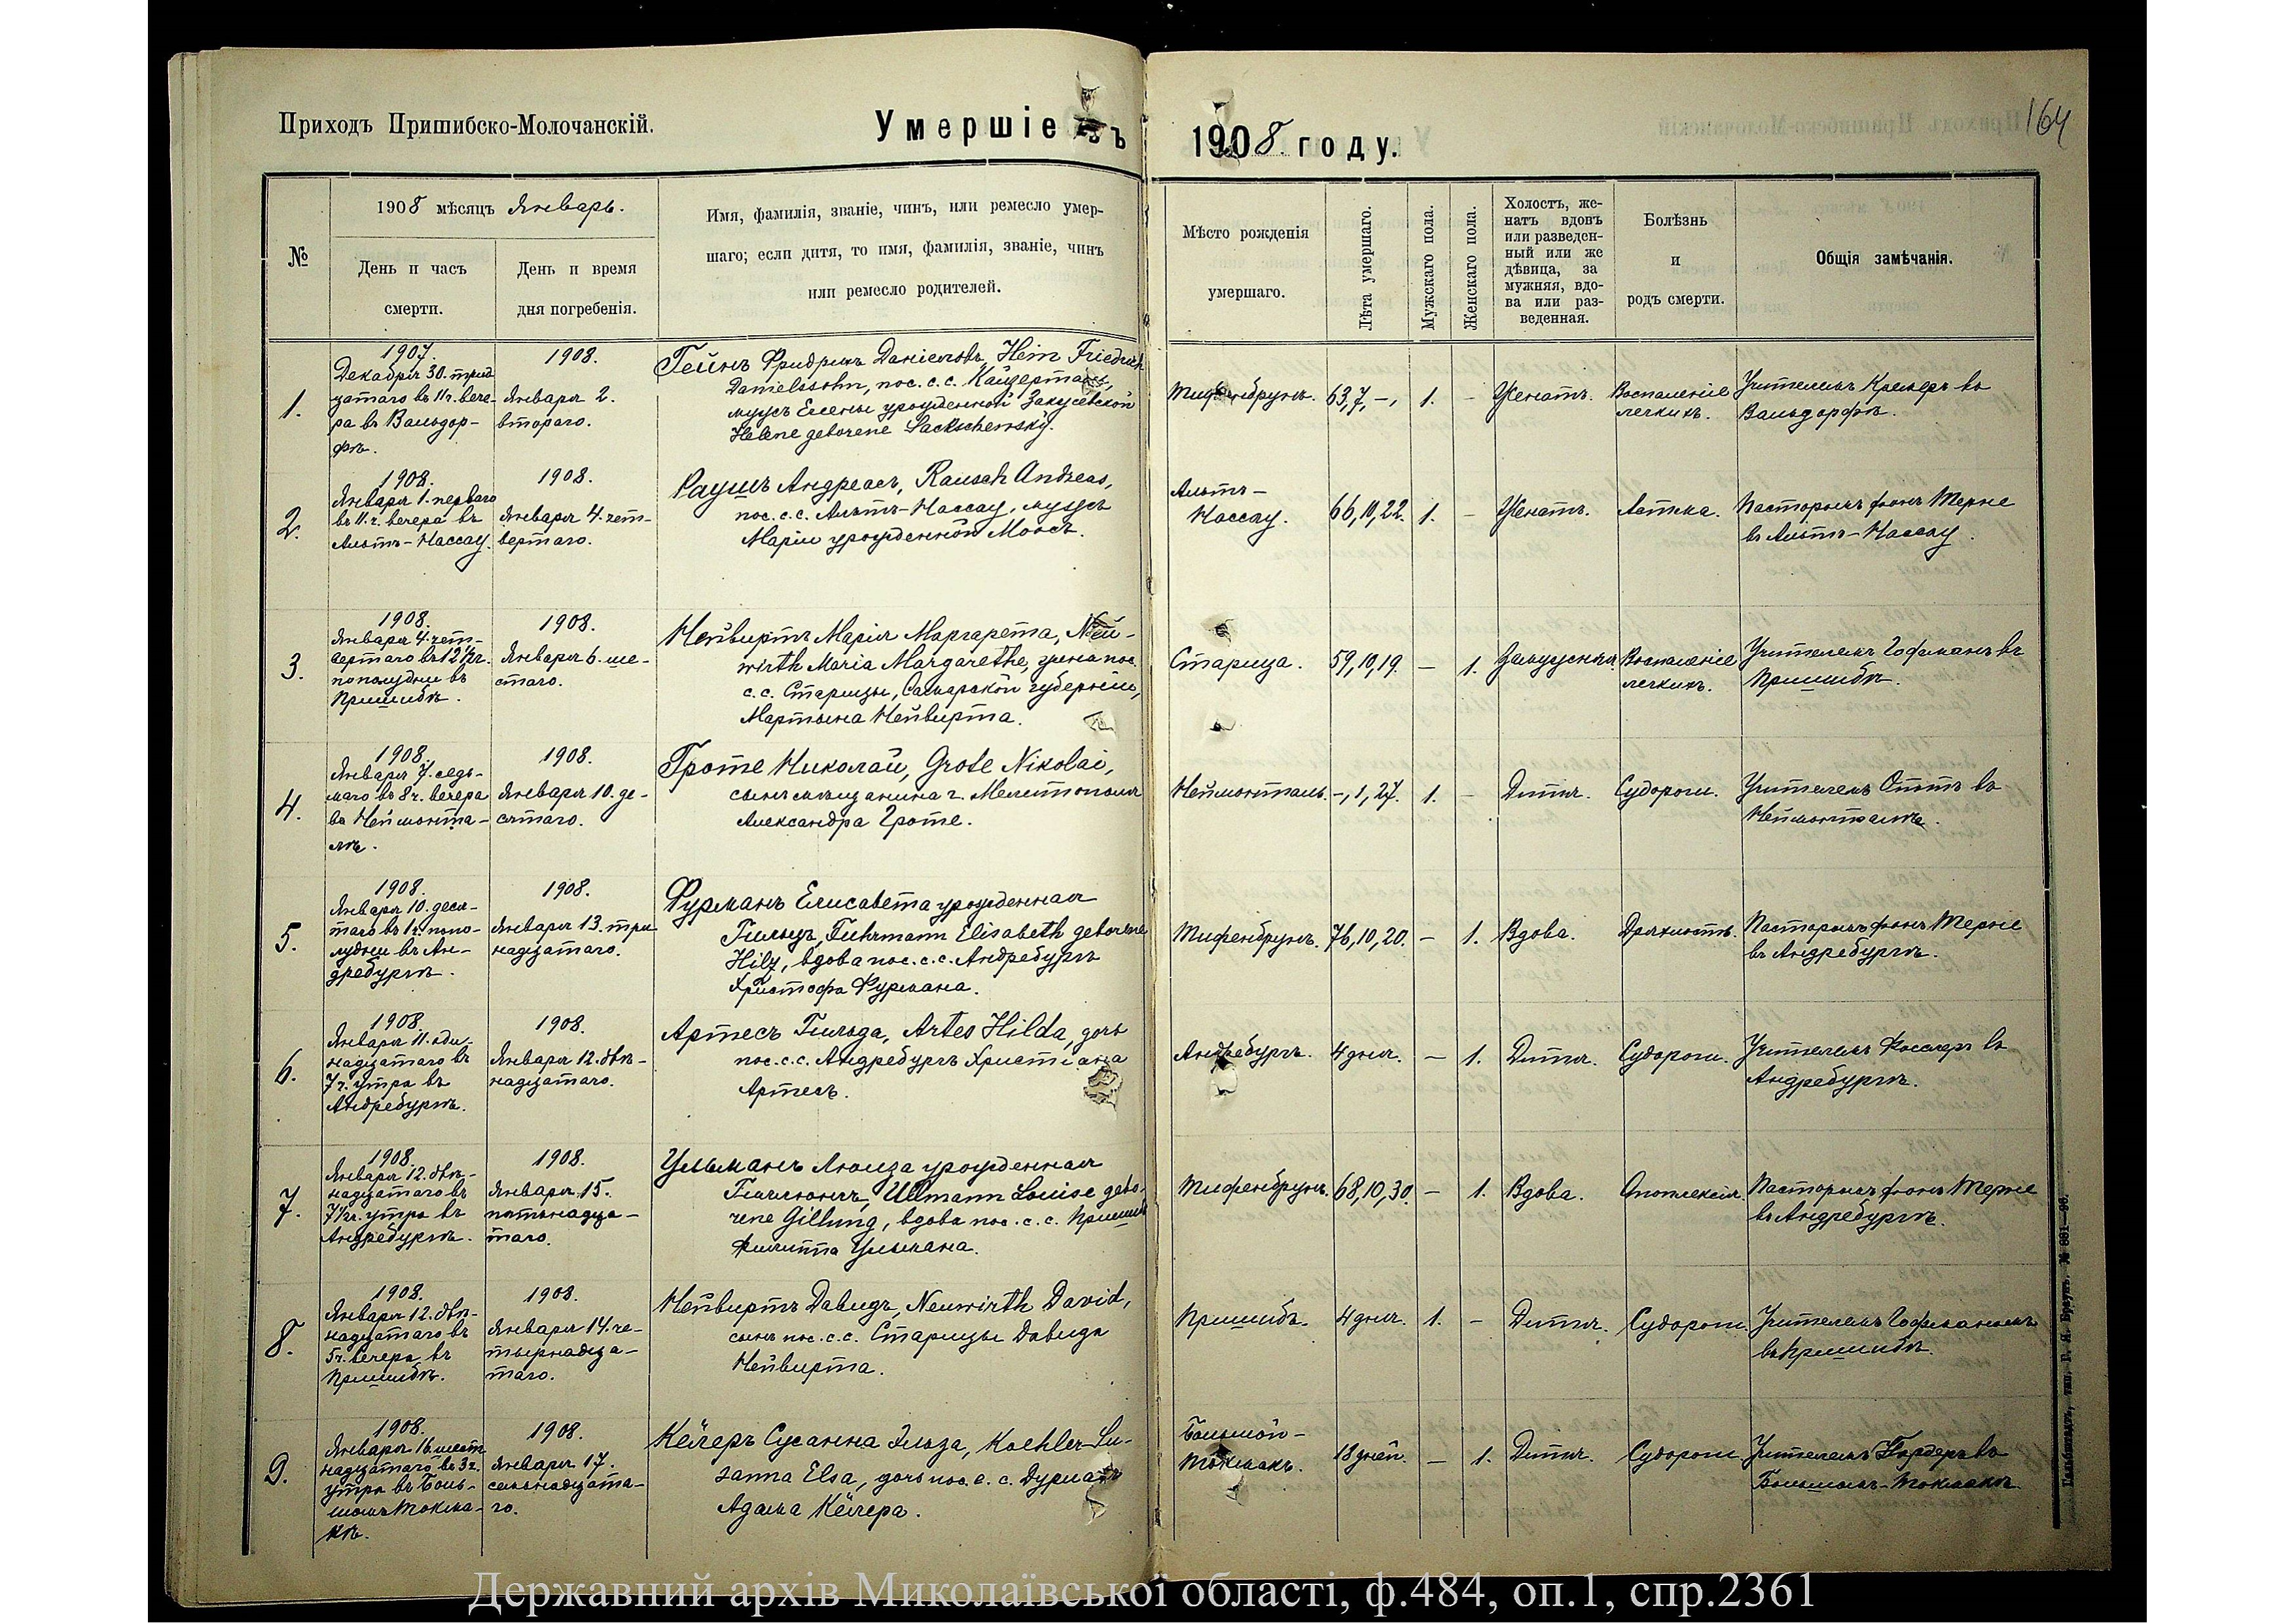 Приходъ Пришибско-Молочанскій.
Умершіе въ
1908 году.
164
№
1908 мѣсяцъ Январь.
День и часъ
смерти.
День и время
дня погребенія.
Имя, фамилія, званіе, чинъ, или ремесло умер-
шаго; если дитя, то имя, фамилія, званіе, чинъ
или ремесло родителей.
Мѣсто рожденія
умершаго.
Лѣта умершаго.
Мужскаго пола.
Женскаго пола.
Холостъ, же-
натъ вдовъ
или разведен-
ный или же
дѣвица, за
мужняя, вдо-
ва или раз-
веденная.
Болѣзнь
и
родъ смерти.
Общія замѣчанія.
1.
1907.
Декабря 30. трид
цатаго въ 11 ч. вече-
ра въ Вальдор-
фѣ.
1908.
Января 2.
втораго.
Гейнъ Фридрихъ Даніеловъ, Hein Friedrich
Danielssohn, пос. с. с. Кайзерталь,
мужъ Елены урожденной Закусевской
Helene geborene Sackschewsky.
Тифенбрунъ.
63,7,-,
1.
-
Женатъ.
Воспаленіе
легкихъ.
Учителемъ Кремеръ въ
Вальдорфѣ.
2.
1908.
Января 1. перваго
въ 11. ч. вечера въ
Альтъ-Нассау.
1908.
Января 4. чет-
вертаго.
Раушъ Андреасъ, Rausch Andreas,
пос. с. с. Альтъ-Нассау, мужъ
Маріи урожденной Моосъ.
Альтъ-
Нассау.
66,10,22.
1.
-
Женатъ.
Астма.
Пасторомъ фонъ Терне
въ Альтъ-Нассау.
3.
1908.
Января 4. чет-
вертаго въ 12 1/2 ч.
пополудни въ
Пришибѣ.
1908.
Января 6. ше-
стаго.
Нейвиртъ Марія Маргарета, Neu-
wirth Maria Margarethe, жена пос.
с. с. Старицы, Самарской губерніи,
Мартына Нейвирта.
Старица.
59,10,19.
-
1.
Замужняя.
Воспаленіе
легкихъ.
Учителемъ Гофманъ въ
Пришибѣ.
4.
1908.
Января 7. седь-
маго въ 8 ч. вечера
въ Неймонта-
лѣ.
1908.
Января 10. де-
сятаго.
Гроте Николай, Grote Nikolai,
сынъ мѣщанина г. Мелитополя
Александра Гроте.
Неймонталь.
-,1,27.
1.
-
Дитя.
Судороги.
Учителемъ Оттъ въ
Неймонталѣ.
5.
1908.
Января 10. деся-
таго въ 1 ч. попо-
лудни въ Ан-
дребургѣ.
1908.
Января 13. три
надцатаго.
Фурманъ Елисавета урожденная
Гильцъ, Fuhrmann Elisabeth geborene
Hilz, вдова пос. с. с. Андребургъ
Христофа Фурмана.
Тифенбрунъ.
76,10,20.
-
1.
Вдова.
Дряхлость.
Пасторомъ фонъ Терне
въ Андребургѣ.
6.
1908.
Января 11. оди-
надцатаго въ
7 ч. утра въ
Андребургѣ.
1908.
Января 12. двѣ-
надцатаго.
Артесъ Гильда, Artes Hilda, дочь
пос. с. с. Андребургъ Христіана
Артесъ.
Андребургъ.
4 дня.
-
1.
Дитя.
Судороги.
Учителемъ Фоселеръ въ
Андребургѣ.
7.
1908.
Января 12. двѣ-
надцатаго въ
7 1/2 ч. утра въ
Андребургѣ.
1908.
Января 15.
пятьнадца-
таго.
Ульманъ Люиза урожденная
Гиллюнгъ, Ullmann Louise gebo-
rene Gillung, вдова пос. с. с. Пришибъ
Филиппа Ульмана.
Тифенбрунъ.
68,10,30.
-
1.
Вдова.
Апоплексія.
Пасторомъ фонъ Терне
въ Андребургѣ.
8.
1908.
Января 12. двѣ-
надцатаго въ
5 ч. вечера въ
Пришибѣ.
1908.
Января 14. че-
тырнадца-
таго.
Нейвиртъ Давидъ, Neuwirth David,
сынъ пос. с. с. Старицы Давида
Нейвирта.
Пришибъ.
4 дня.
1.
-
Дитя.
Судороги.
Учителемъ Гофманомъ
въ Пришибѣ.
9.
1908.
Января 16. шест
надцатаго въ 3 ч.
утра въ Боль-
шомъ Токма-
кѣ.
1908.
Января 17.
семьнадцата-
го.
Кёлеръ Сусанна Эльза, Koehler Su-
sanna Elsa, дочь пос. с. с. Дурлахъ
Адама Кёлера.
Большой-
Токмакъ.
18 дней.
-
1.
Дитя.
Судороги.
Учителемъ въ
Большомъ-Токмакѣ.
Гальбштадтъ, тип. Г. Я. Браунъ. № 891-96.
Державний архів Миколаївської області, ф.484, оп.1, спр.2361